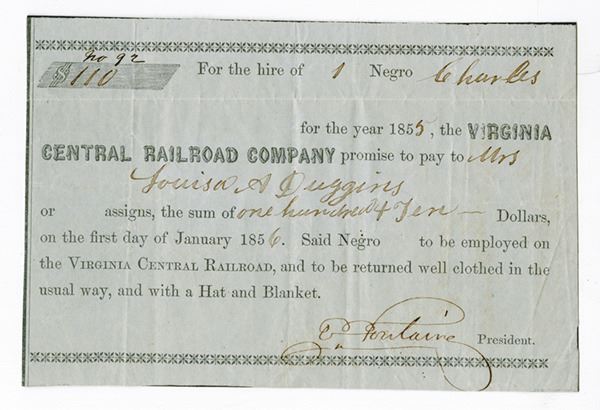 No 92
$110 For the hire of 1 Negro Charles
for the year 1855, the VIRGINIA
CENTRAL RAILROAD COMPANY promise to pay to Mrs
Louisa A Duggins
or assigns, the sum of one hundred & Ten — Dollars,
on the first day of January 1856. Said Negro to be employed on
the VIRGINIA CENTRAL RAILROAD, and to be returned well clothed in the
usual way, and with a Hat and Blanket.
Ed Fontaine President.